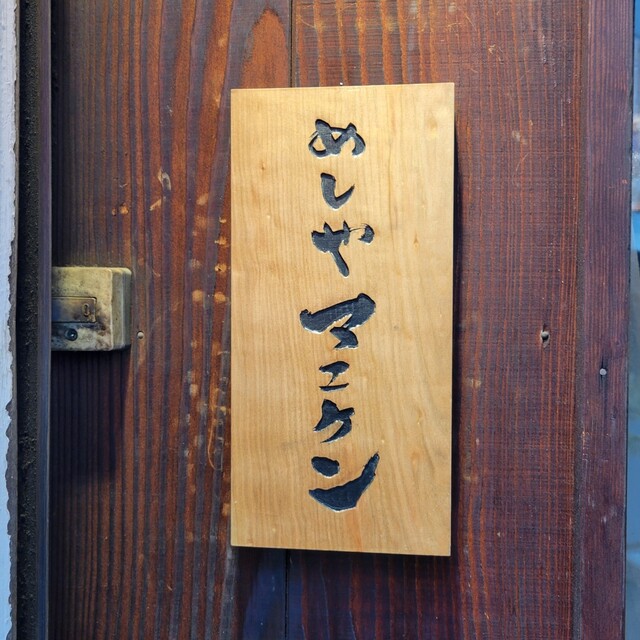 めしや マエケン